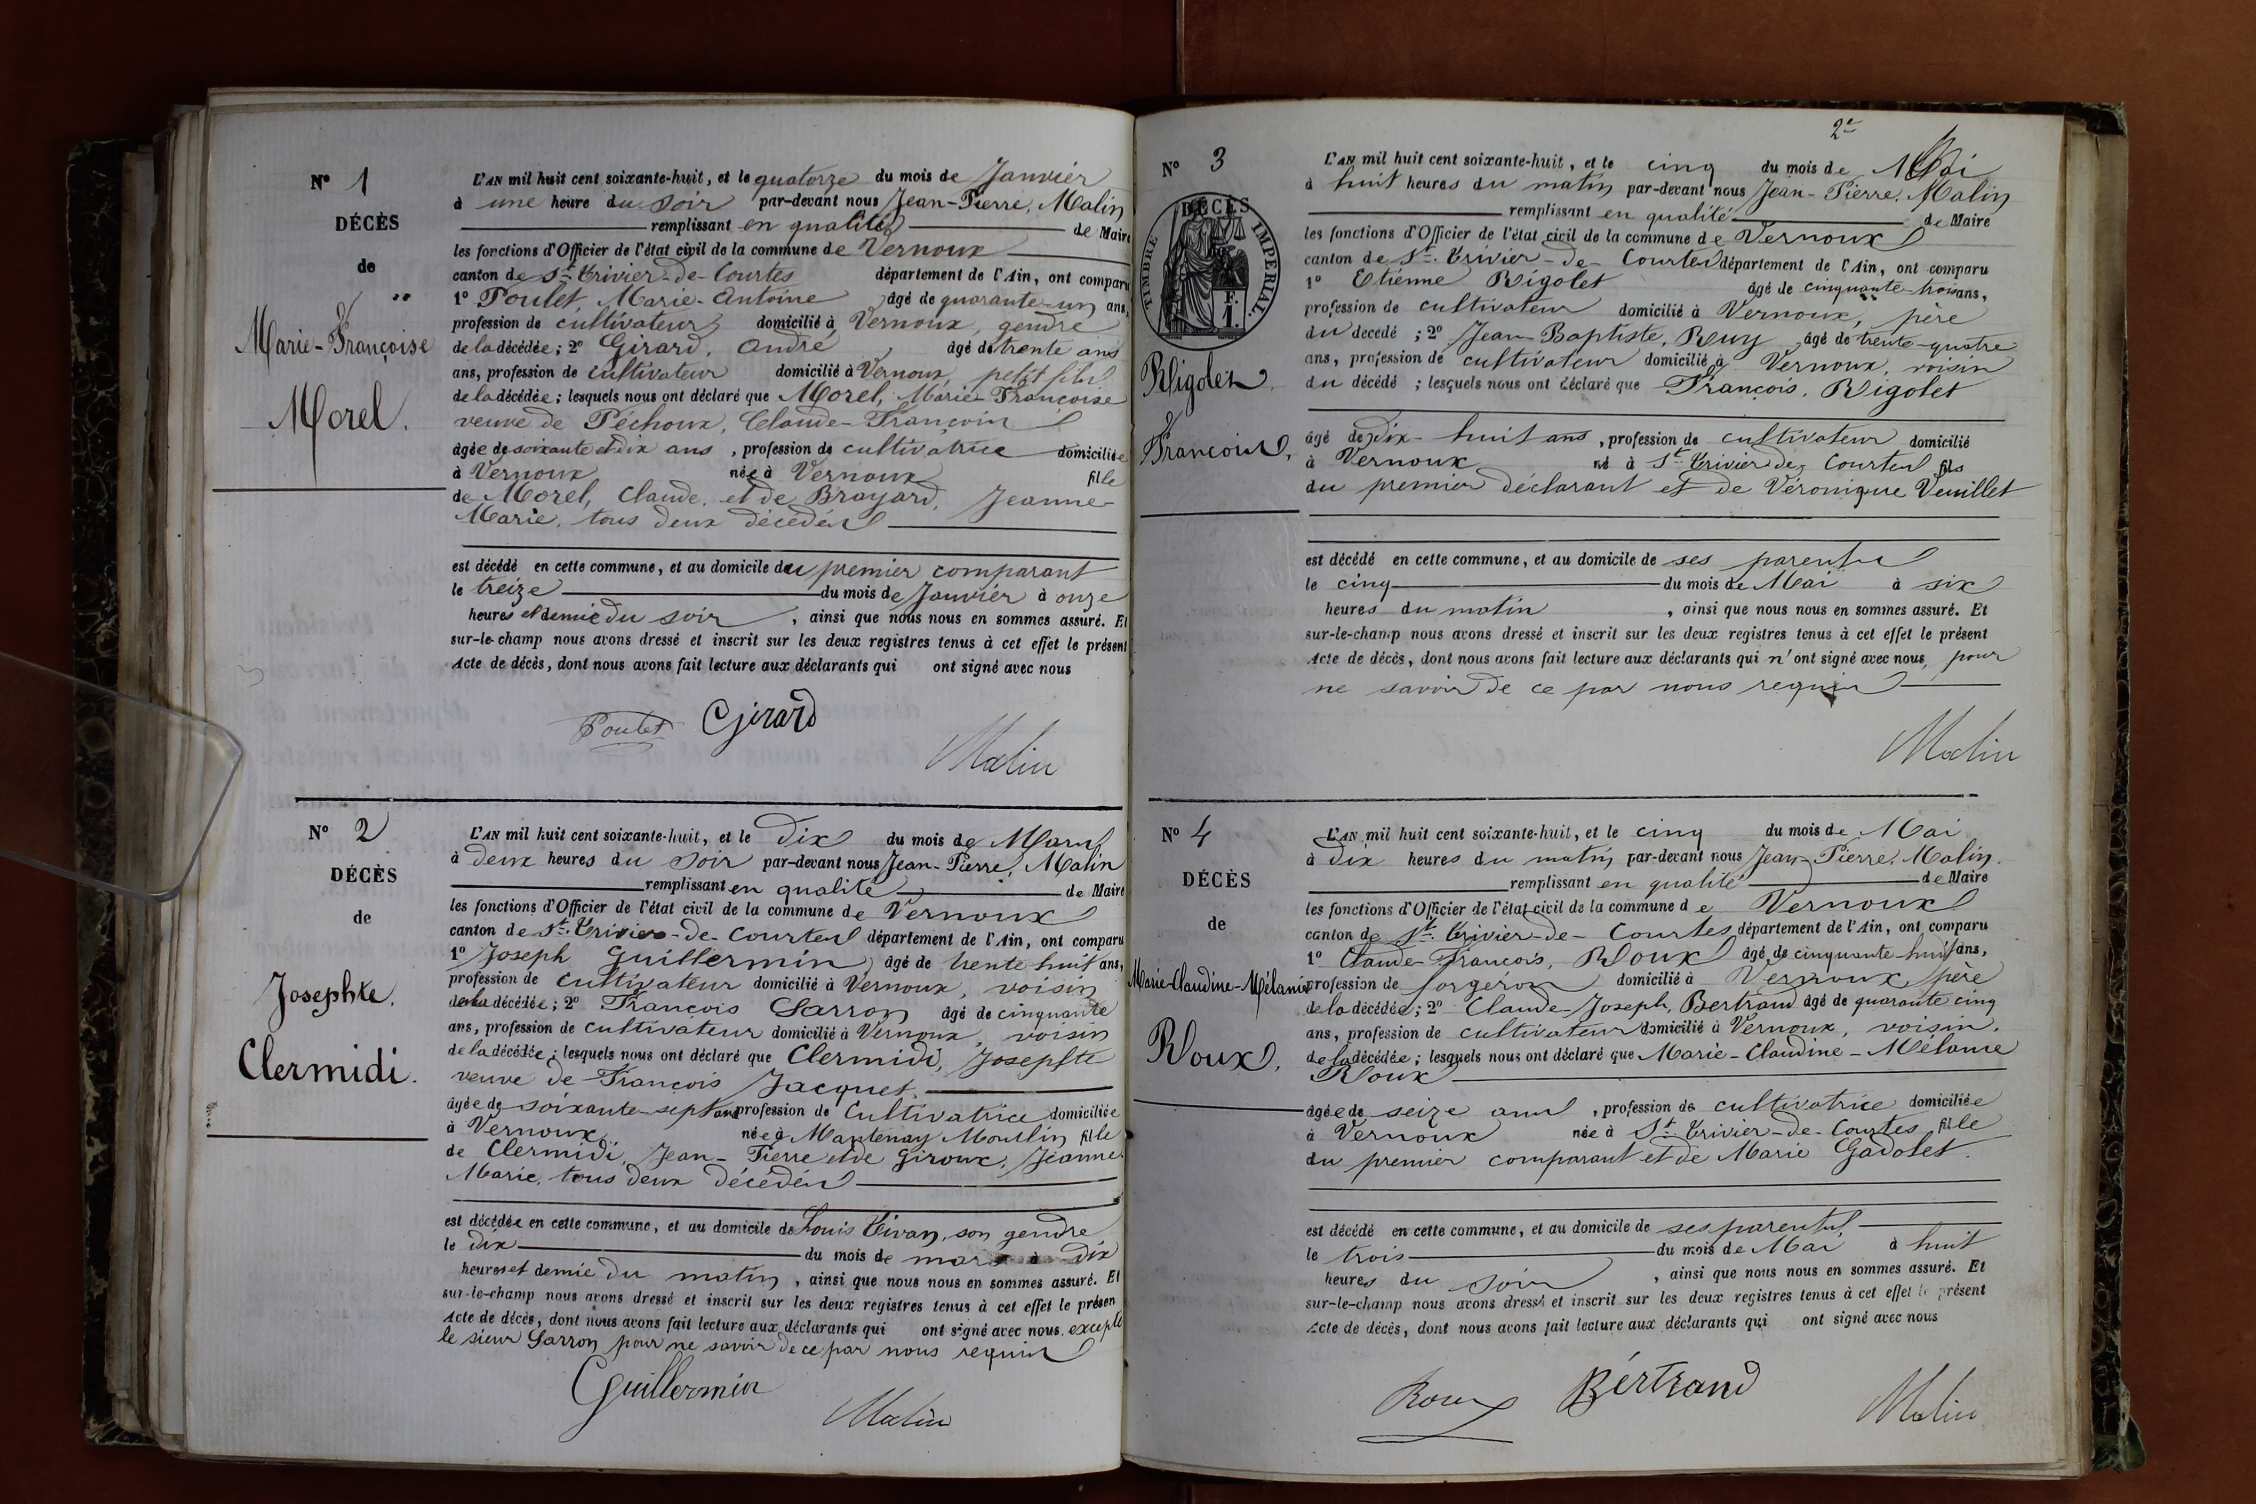 N° 1
DÉCÈS
de
Marie-Françoise
Morel.
L'AN mil huit cent soixante-huit, et le quatorze du mois de Janvier
à une heure du soir par-devant nous Jean-Pierre, Malin
remplissant en qualité de Maire
les fonctions d'Officier de l'état civil de la commune de Vernoux
canton de St. Trivier-de-Courtes département de l'Ain, ont comparu
1° Poulet, Marie-Antoine âgé de quarante-un ans,
profession de cultivateur domicilié à Vernoux, gendre
de la décédée; 2° Girard, André âgé de trente ans
ans, profession de cultivateur domicilié à Vernoux, petit fils
de la décédée; lesquels nous ont déclaré que Morel, Marie-Françoise
veuve de Péchoux, Claude-François
âgée de soixante et dix ans, profession de cultivatrice domiciliée
à Vernoux née à Vernoux fille
de Morel, Claude, et de Brayard, Jeanne-
Marie, tous deux décédés
est décédé en cette commune, et au domicile du premier comparant
le treize du mois de Janvier à onze
heures et demie du soir, ainsi que nous nous en sommes assuré. Et
sur-le-champ nous avons dressé et inscrit sur les deux registres tenus à cet effet le présent
Acte de décès, dont nous avons fait lecture aux déclarants qui ont signé avec nous
Poulet Girard
Malin
N° 2
DÉCÈS
de
Josephte.
Clermidi.
L'AN mil huit cent soixante-huit, et le dix du mois de Mars
à deux heures du soir par-devant nous Jean-Pierre, Malin
remplissant en qualité de Maire
les fonctions d'Officier de l'état civil de la commune de Vernoux
canton de St. Trivier-de-Courtes département de l'Ain, ont comparu
1° Joseph Guillermin âgé de trente huit ans,
profession de cultivateur domicilié à Vernoux, voisin
de la décédée; 2° François Sarron âgé de cinquante
ans, profession de cultivateur domicilié à Vernoux, voisin
de la décédée; lesquels nous ont déclaré que Clermidi, Josephte
veuve de François Jacquet.
âgée de soixante-sept ans profession de Cultivatrice domiciliée
à Vernoux née à Mantenay Montlin fille
de Clermidi, Jean-Pierre et de Giroux, Jeanne
Marie, tous deux décédés
est décédée en cette commune, et au domicile de Louis Tivan, son gendre
le dix du mois de mars à dix
heures et demie du matin, ainsi que nous nous en sommes assuré. Et
sur-le-champ nous avons dressé et inscrit sur les deux registres tenus à cet effet le présen
Acte de décès, dont nous avons fait lecture aux déclarants qui ont signé avec nous excepté
le sieur Sarron pour ne savoir de ce par nous requis
Guillermin
Malin
2e
N° 3
DÉCÈS
TIMBRE IMPERIAL.
1 F.
Rigolet
François,
L'AN mil huit cent soixante-huit, et le cinq du mois de Mai
à huit heures du matin par-devant nous Jean-Pierre, Malin
remplissant en qualité de Maire
les fonctions d'Officier de l'état civil de la commune de Vernoux
canton de St. Trivier-de-Courtes département de l'Ain, ont comparu
1° Etienne Rigolet âgé de cinquante-trois ans,
profession de cultivateur domicilié à Vernoux, père
du décédé; 2° Jean-Baptiste, Buy âgé de trente-quatre
ans, profession de cultivateur domicilié à Vernoux, voisin
du décédé; lesquels nous ont déclaré que François, Rigolet
âgé de dix-huit ans, profession de cultivateur domicilié
à Vernoux né à St Trivier de Courtes fils
du premier déclarant et de Véronique Veuillet
est décédé en cette commune, et au domicile de ses parents
le cinq du mois de Mai à six
heures du matin, ainsi que nous nous en sommes assuré. Et
sur-le-champ nous avons dressé et inscrit sur les deux registres tenus à cet effet le présent
Acte de décès, dont nous avons fait lecture aux déclarants qui n'ont signé avec nous, pour
ne savoir de ce par nous requis
Malin
N° 4
DÉCÈS
de
Marie-Claudine-Mélanie
Roux,
L'AN mil huit cent soixante-huit, et le cinq du mois de Mai
à dix heures du matin par-devant nous Jean-Pierre, Malin.
remplissant en qualité de Maire
les fonctions d'Officier de l'état civil de la commune de Vernoux
canton de St. Trivier-de-Courtes département de l'Ain, ont comparu
1° Claude-François, Roux âgé de cinquante-huit ans,
profession de forgéron domicilié à Vernoux père
de la décédée; 2° Claude-Joseph, Bertrand âgé de quarante cinq
ans, profession de cultivateur domicilié à Vernoux, voisin.
de la décédée; lesquels nous ont déclaré que Marie-Claudine-Mélanie
Roux
âgée de seize ans, profession de cultivatrice domiciliée
à Vernoux née à St. Trivier-de-Courtes fille
du premier comparant et de Marie Gadolet.
est décédé en cette commune, et au domicile de ses parents,
le trois du mois de Mai à huit
heures du soir, ainsi que nous nous en sommes assuré. Et
sur-le-champ nous avons dressé et inscrit sur les deux registres tenus à cet effet le présent
Acte de décès, dont nous avons fait lecture aux déclarants qui ont signé avec nous
Roux Bértrand
Malin